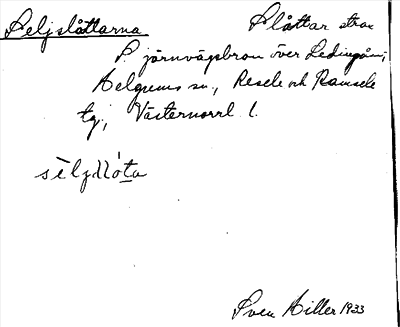 Seljslåttarna Slåttar strax
S. järnvägsbron över Ledingån,
Helgums sn., Resele och Ramsele
tg., Västernorrl. l.
sèljslóta
Sven Hiller 1933